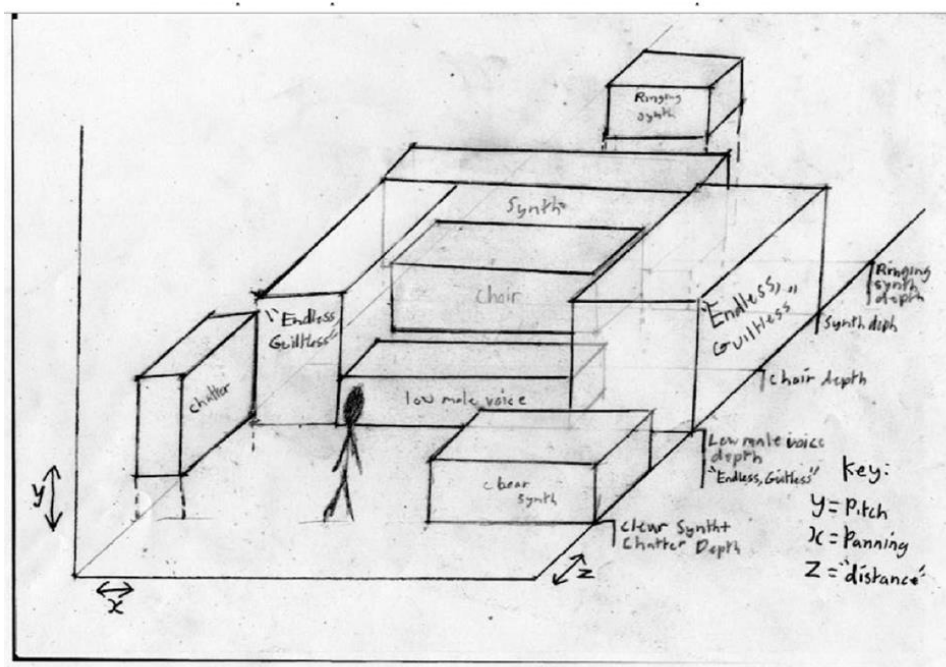 Ringing
synth
Synth
Choir
"Endless,
Guiltless"
"Endless,,,
Guiltless
chatter
low male voice
clear
synth
Ringing
synth
depth
Synth depth
Choir depth
Low male voice
depth
"Endless, Guiltless"
Clear Synth +
Chatter Depth
key:
y = Pitch
x = Panning
Z = "distance"
y
x
Z